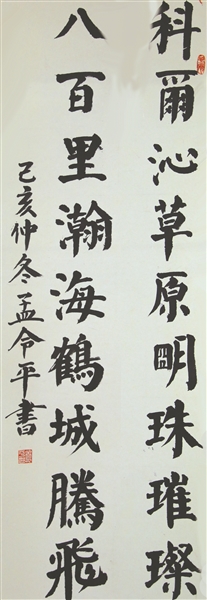 科爾沁草原明珠璀璨
八百里瀚海鶴城騰飛
己亥仲冬孟令平書